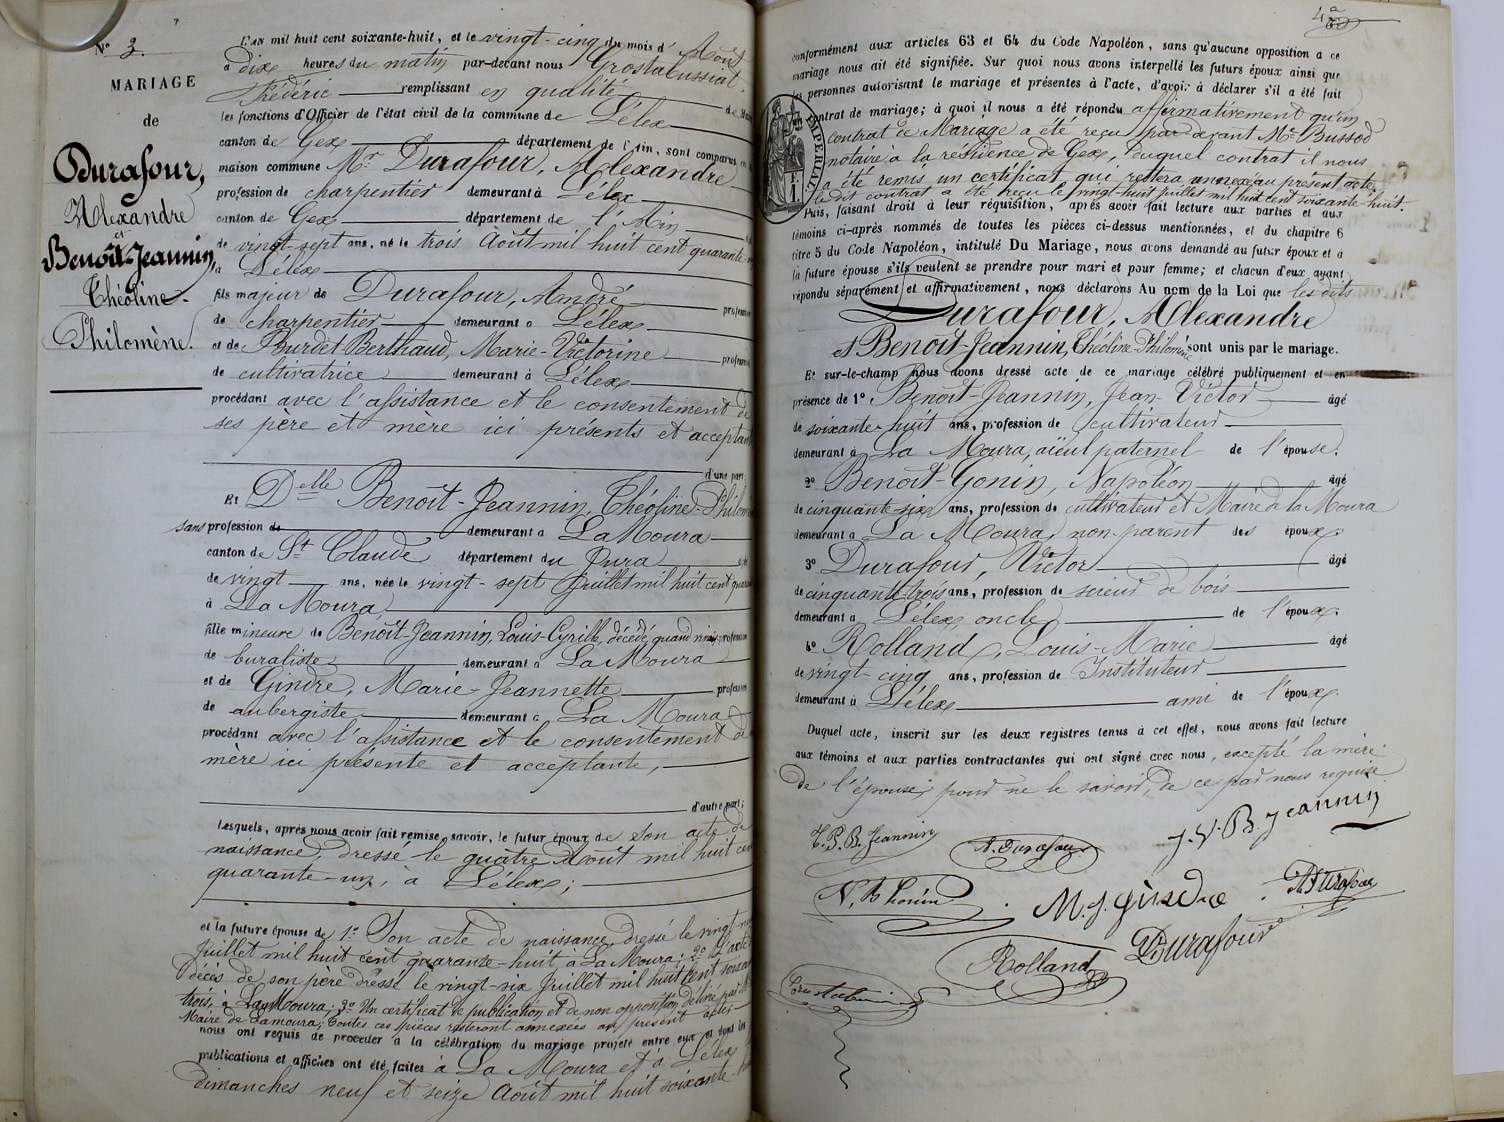 N° 3.
MARIAGE
de
Durafour,
Alexandre
et
Benoît-Jeannin,
Théoline-
Philomène.
L'AN mil huit cent soixante-huit, et le vingt-cinq du mois d' Août
à dix heures du matin par-devant nous Grostabussiat,
Frédéric remplissant en qualité de
les fonctions d'Officier de l'état civil de la commune de Lélex
canton de Gex département de l'Ain, sont comparus en
maison commune Mr. Durafour, Alexandre
profession de charpentier demeurant à Lélex
canton de Gex département de l'Ain
de vingt-sept ans, né le trois Août mil huit cent quarante-
à Lélex
fils majeur de Durafour, André profession
de charpentier demeurant à Lélex
et de Burdet Berthaud, Marie-Victorine profession
de cultivatrice demeurant à Lélex
procédant avec l'assistance et le consentement de
ses père et mère ici présents et acceptant
d'une part,
Et Delle Benoît-Jeannin, Théoline-Philom
sans profession de demeurant à La Moura
canton de St. Claude département du Jura
de vingt ans, née le vingt-sept Juillet mil huit cent quara
à La Moura
fille mineure de Benoît-Jeannin, Louis-Cyrille, décédé, quand vivait profession
de buraliste demeurant à La Moura
et de Gindre, Marie-Jeannette profession
de aubergiste demeurant à La Moura
procédant avec l'assistance et le consentement de
mère ici présente et acceptante,
d'autre part;
Lesquels, après nous avoir fait remise, savoir, le futur époux de Son acte de
naissance, dressé le quatre Août mil huit cent
quarante-un, à Lélex;
et la future épouse de 1° Son acte de naissance dressé le vingt-
Juillet mil huit cent quarante-huit, à La Moura; 2° L'acte
décès de son père dressé le vingt-six Juillet mil huit cent soixan
trois, à La Moura; 3° Un certificat de publication et de non opposition délivré par le
Maire de Lamoura; toutes ces pièces resteront annexées au présent acte
nous ont requis de procéder à la célébration du mariage projeté entre eux et dont les
publications et affiches ont été faites à La Moura et à Lélex
dimanches neuf et seize Août mil huit soixante-
conformément aux articles 63 et 64 du Code Napoléon, sans qu'aucune opposition à ce
mariage nous ait été signifiée. Sur quoi nous avons interpellé les futurs époux ainsi que
les personnes autorisant le mariage et présentes à l'acte, d'avoir à déclarer s'il a été fait
contrat de mariage; à quoi il nous a été répondu affirmativement qu'un
contrat de Mariage a été reçu par devant Me. Bussod
notaire à la résidence de Gex, duquel contrat il nous
a été remis un certificat qui restera annexé au présent acte
le dit contrat a été reçu le vingt-huit juillet mil huit cent soixante-huit.
IMPERIAL
Puis, faisant droit à leur réquisition, après avoir fait lecture aux parties et aux
témoins ci-après nommés de toutes les pièces ci-dessus mentionnées, et du chapitre 6
titre 5 du Code Napoléon, intitulé Du Mariage, nous avons demandé au futur époux et à
la future épouse s'ils veulent se prendre pour mari et pour femme; et chacun d'eux ayant
répondu séparément et affirmativement, nous déclarons Au nom de la Loi que les dits
Durafour, Alexandre
et Benoît-Jeannin, Théoline-Philomène sont unis par le mariage.
Et sur-le-champ nous avons dressé acte de ce mariage célébré publiquement et en
présence de 1° Benoît-Jeannin, Jean-Victor âgé
de soixante-huit ans, profession de cultivateur
demeurant à La Moura, aïeul paternel de l'épouse.
2° Benoît-Gonin, Napoléon âgé
de cinquante six ans, profession de cultivateur et Maire de la Moura
demeurant à La Moura, non parent des époux
3° Durafour, Victor âgé
de cinquante trois ans, profession de scieur de bois
demeurant à Lélex oncle de l'époux.
4° Rolland, Louis-Marie âgé
de vingt-cinq ans, profession de Instituteur
demeurant à Lélex ami de l'époux.
Duquel acte, inscrit sur les deux registres tenus à cet effet, nous avons fait lecture
aux témoins et aux parties contractantes qui ont signé avec nous, excepté la mère
de l'épouse, pour ne le savoir, de ce par nous requise
T. P. B. Jeannin
A. Durafour
J. V. B. Jeannin
N. B Gonin
M. J. Gindre
Durafour
Rolland
Durafour